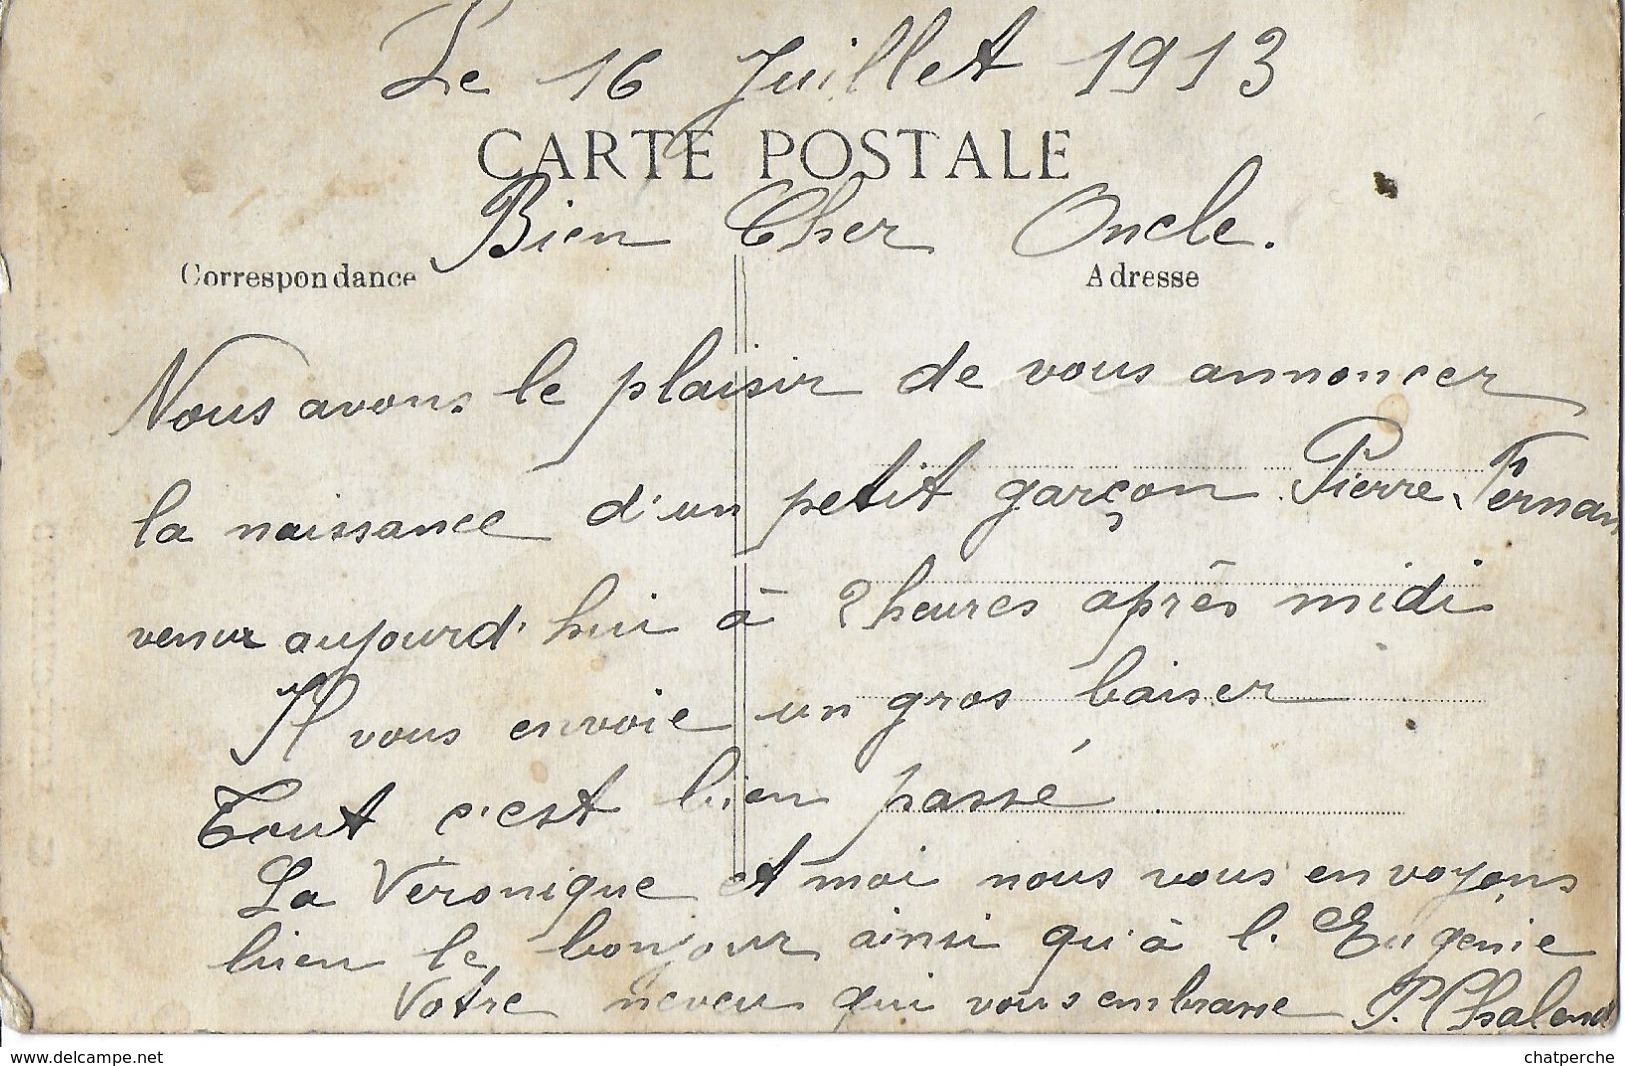 Le 16 Juillet 1913
CARTE POSTALE
Bien Cher Oncle.
Correspondance
Adresse
Nous avons le plaisir de vous annoncer
la naissance d'un petit garçon Pierre, Fernan
venu aujourd'hui à 2 heures après midi
Il vous envoie un gros baiser
Tout c'est bien passé
La Véronique et moi nous vous envoyons
bien le bonjour ainsi qu'à l'Eugénie
Votre neveu qui vous embrasse P. Chalend
chatperche